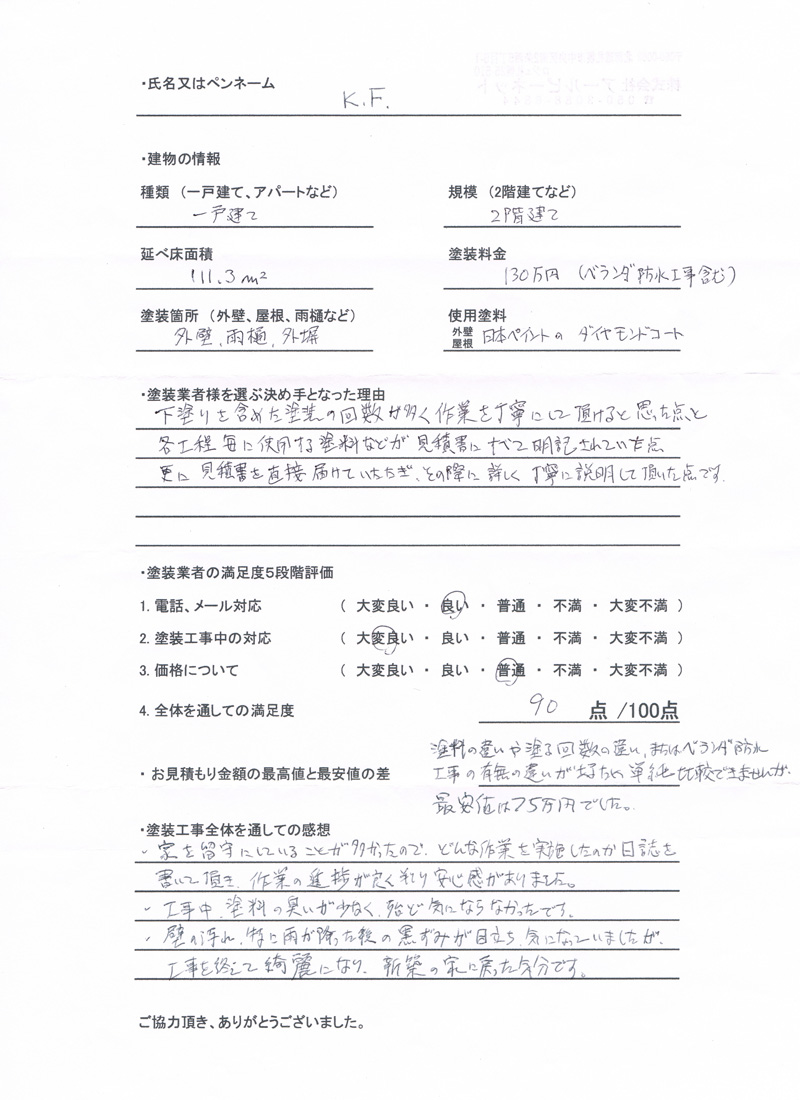 ・氏名又はペンネーム
K.F.
・建物の情報
種類 (一戸建て、アパートなど)
規模 (2階建てなど)
一戸建て
2階建て
延べ床面積
塗装料金
111.3m²
130万円 (ベランダ防水工事含む)
塗装箇所 (外壁、屋根、雨樋など)
使用塗料
外壁、雨樋、外塀
外壁 屋根 日本ペイントの ダイヤモンドコート
・塗装業者様を選ぶ決め手となった理由
下塗りを含めた塗装の回数が多く作業を丁寧にして頂けると思った点と
各工程毎に使用する塗料などが見積書にすべて明記されていた点
更に見積書を直接届けていただき、その際に詳しく丁寧に説明して頂いた点です。
・塗装業者の満足度5段階評価
1. 電話、メール対応 ( 大変良い ・ 良い ・ 普通 ・ 不満 ・ 大変不満 )
2. 塗装工事中の対応 ( 大変良い ・ 良い ・ 普通 ・ 不満 ・ 大変不満 )
3. 価格について ( 大変良い ・ 良い ・ 普通 ・ 不満 ・ 大変不満 )
4. 全体を通しての満足度 90 点 /100点
塗料の違いや塗る回数の違い、またはベランダ防水
・お見積もり金額の最高値と最安値の差 工事の有無の違いがあるため単純比較できませんが、
最安値は75万円でした。
・塗装工事全体を通しての感想
・家を留守にしていることが多かったので、どんな作業を実施したのか日誌を
書いて頂き、作業の進捗が良く判り安心感がありました。
・工事中、塗料の臭いが少なく、殆ど気にならなかったです。
・壁の汚れ、特に雨が降った後の黒ずみが目立ち、気になっていましたが、
工事を終えて綺麗になり、新築の家に戻った気分です。
ご協力頂き、ありがとうございました。